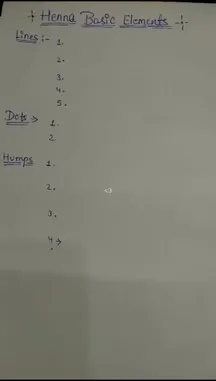 Henna Basic Elements
Lines :- 1.
2.
3.
4.
5.
Dots → 1.
2.
Humps 1.
2.
3.
4 →